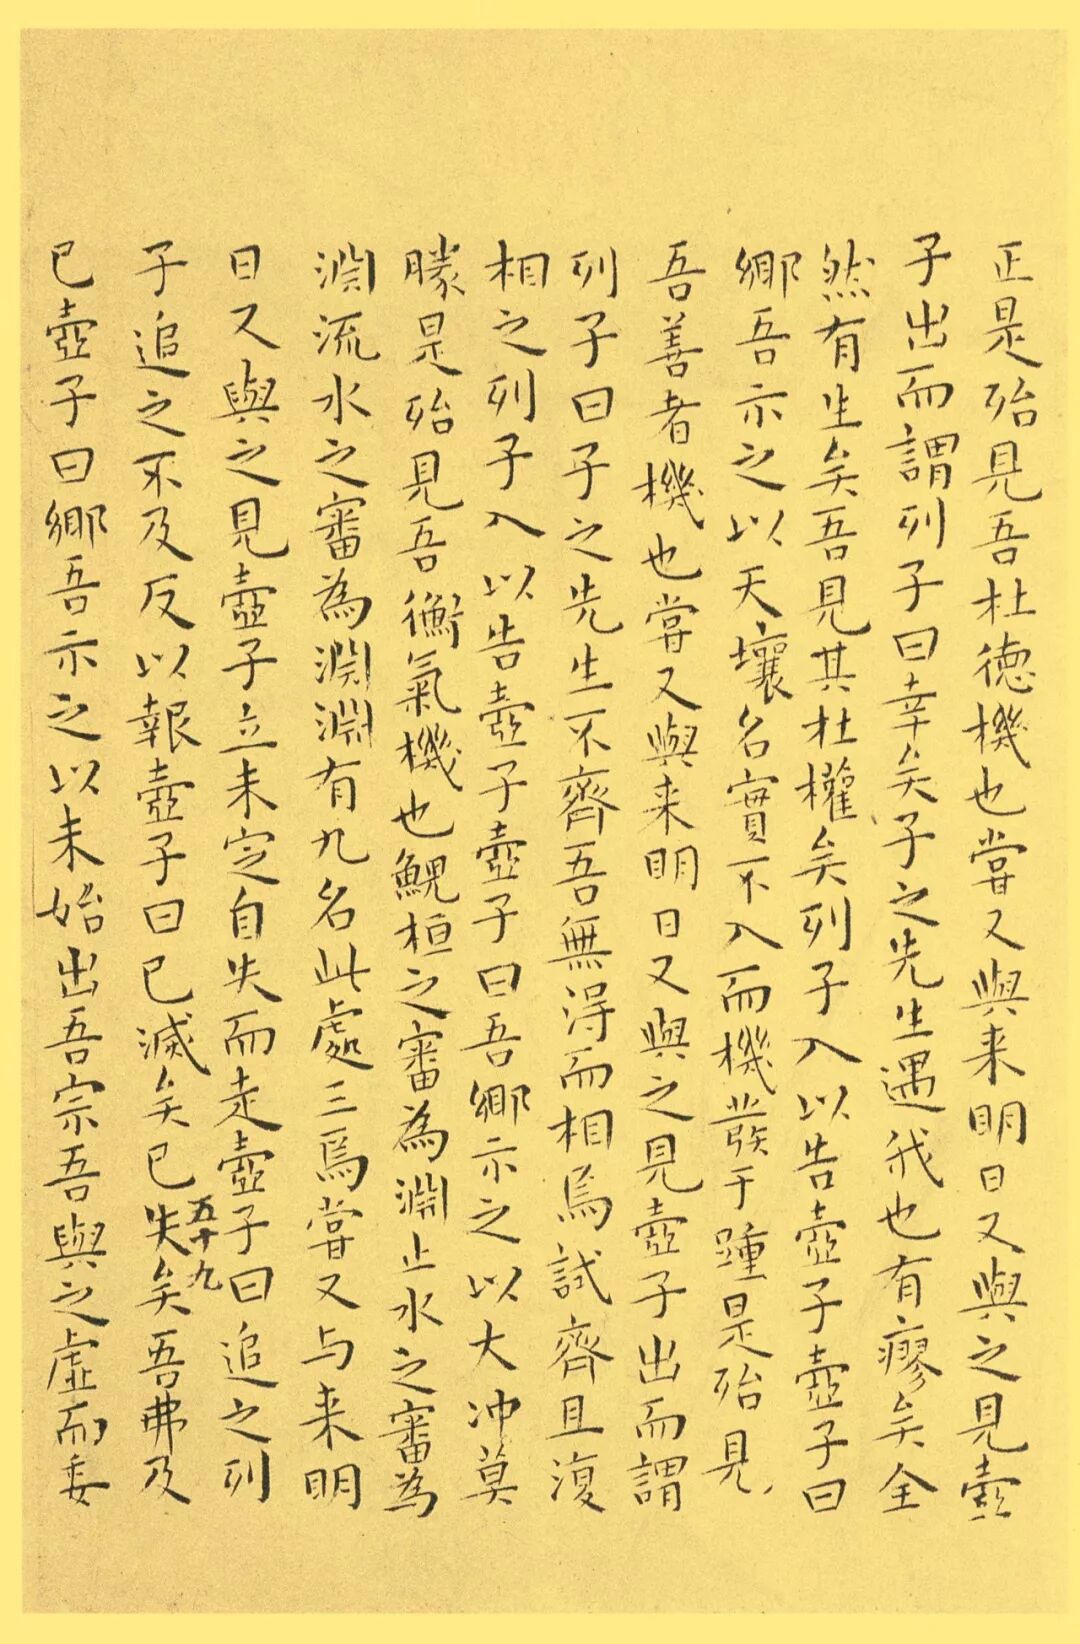 正是殆見吾杜德機也嘗又與来明日又與之見壺
子出而謂列子曰幸矣子之先生遇我也有瘳矣全
然有生矣吾見其杜權矣列子入以告壺子壺子曰
鄉吾示之以天壤名實不入而機發于踵是殆見
吾善者機也嘗又與来明日又與之見壺子出而謂
列子曰子之先生不齊吾無得而相焉試齊且復
相之列子入以告壺子壺子曰吾鄉示之以大冲莫
朕是殆見吾衡氣機也鯢桓之審為淵止水之審為
淵流水之審為淵淵有九名此處三焉嘗又与来明
日又與之見壺子立未定自失而走壺子曰追之列
子追之不及反以報壺子曰已滅矣已失矣吾弗及
五十九
已壺子曰鄉吾示之以未始出吾宗吾與之虛而委